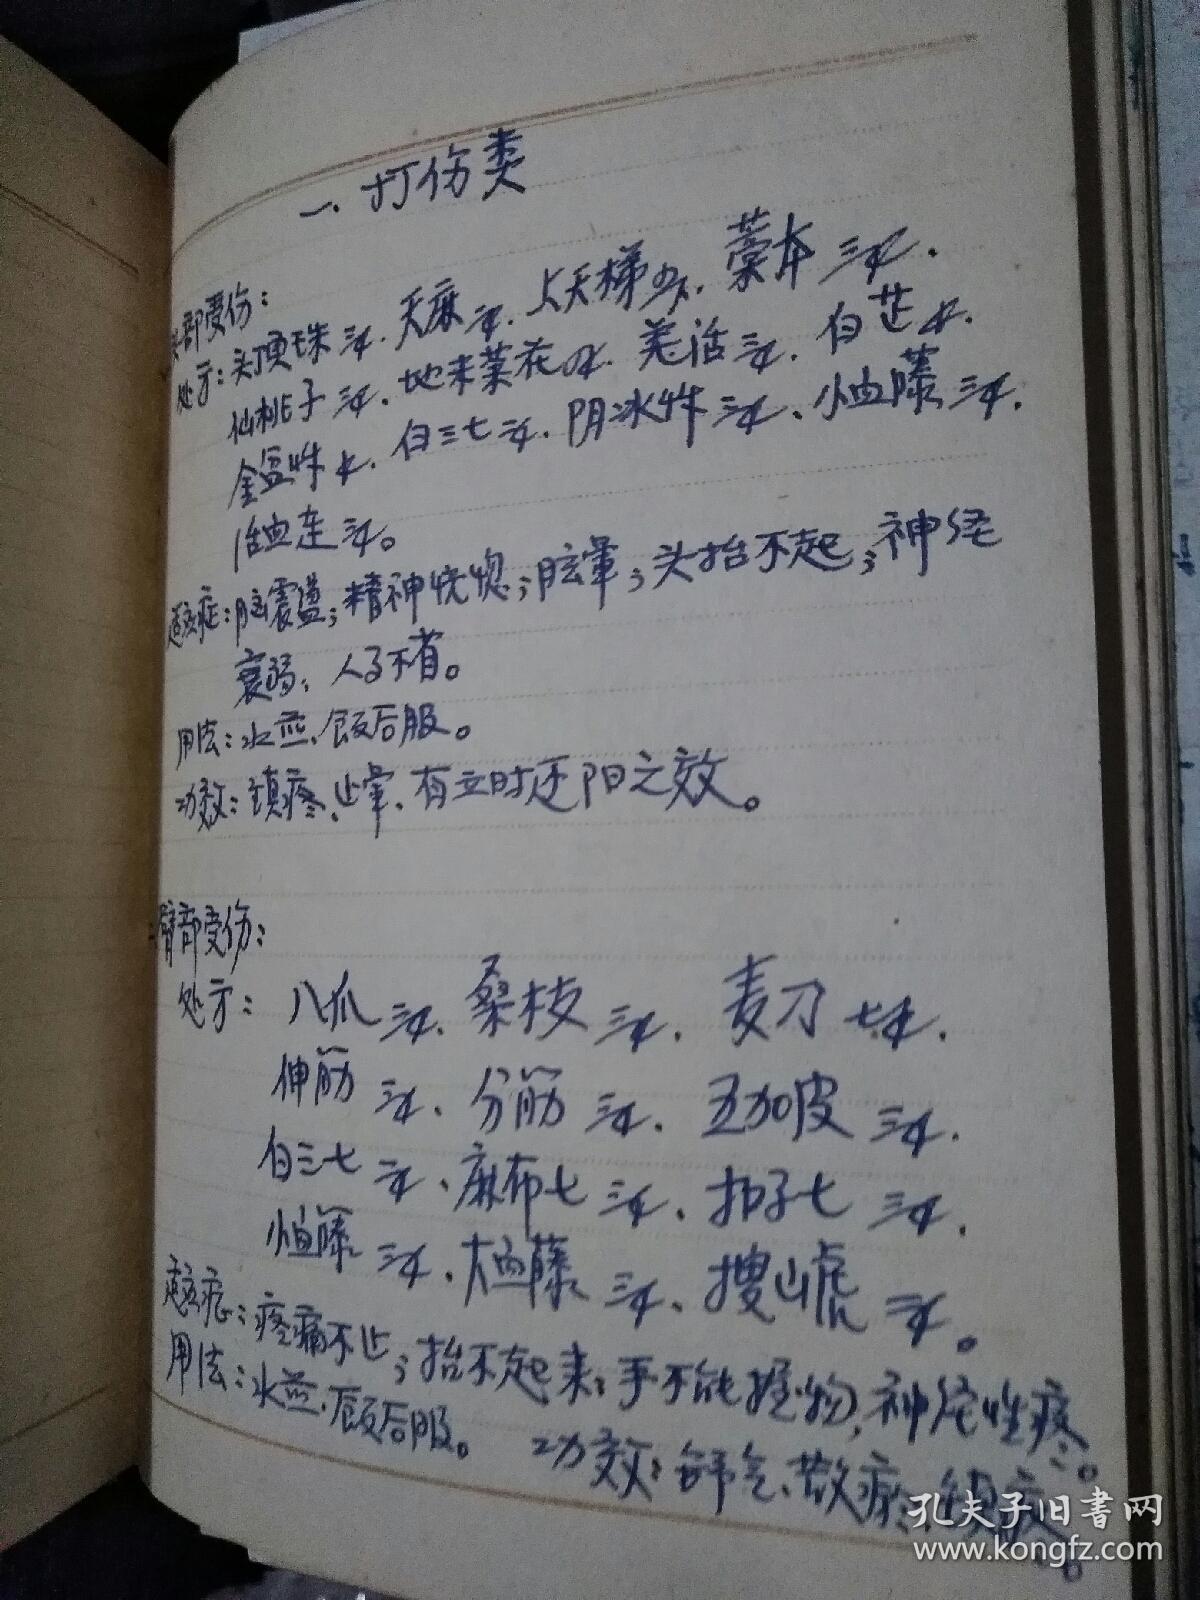 一. 打伤类
头部受伤:
处方: 头顶珠 三钱. 天麻 二钱. 上天梯 四钱. 藁本 三钱.
仙桃子 三钱. 地米菜花 四钱. 羌活 三钱. 白芷 钱.
金盆 钱. 白三七 三钱. 阴冰 三钱. 小血藤 三钱.
活血莲 三钱。
适应症: 脑震盪; 精神恍惚; 眩晕; 头抬不起; 神经
衰弱; 人事不省。
用法: 水煎. 飯后服。
功效: 镇疼、止晕、有立时还阳之效。
臂部受伤:
处方: 八爪 三钱. 桑枝 三钱. 麦刁 七钱.
伸筋 三钱. 分筋 三钱. 五加皮 三钱.
白三七 二钱. 麻布七 三钱. 扣子七 三钱.
小血藤 三钱. 大血藤 三钱. 搜山虎 二钱。
适应症: 疼痛不止; 抬不起来; 手不能握物, 神经性疼。
用法: 水煎. 飯后服。 功效: 气、散瘀、镇疼。
孔夫子旧书网
www.kongfz.com